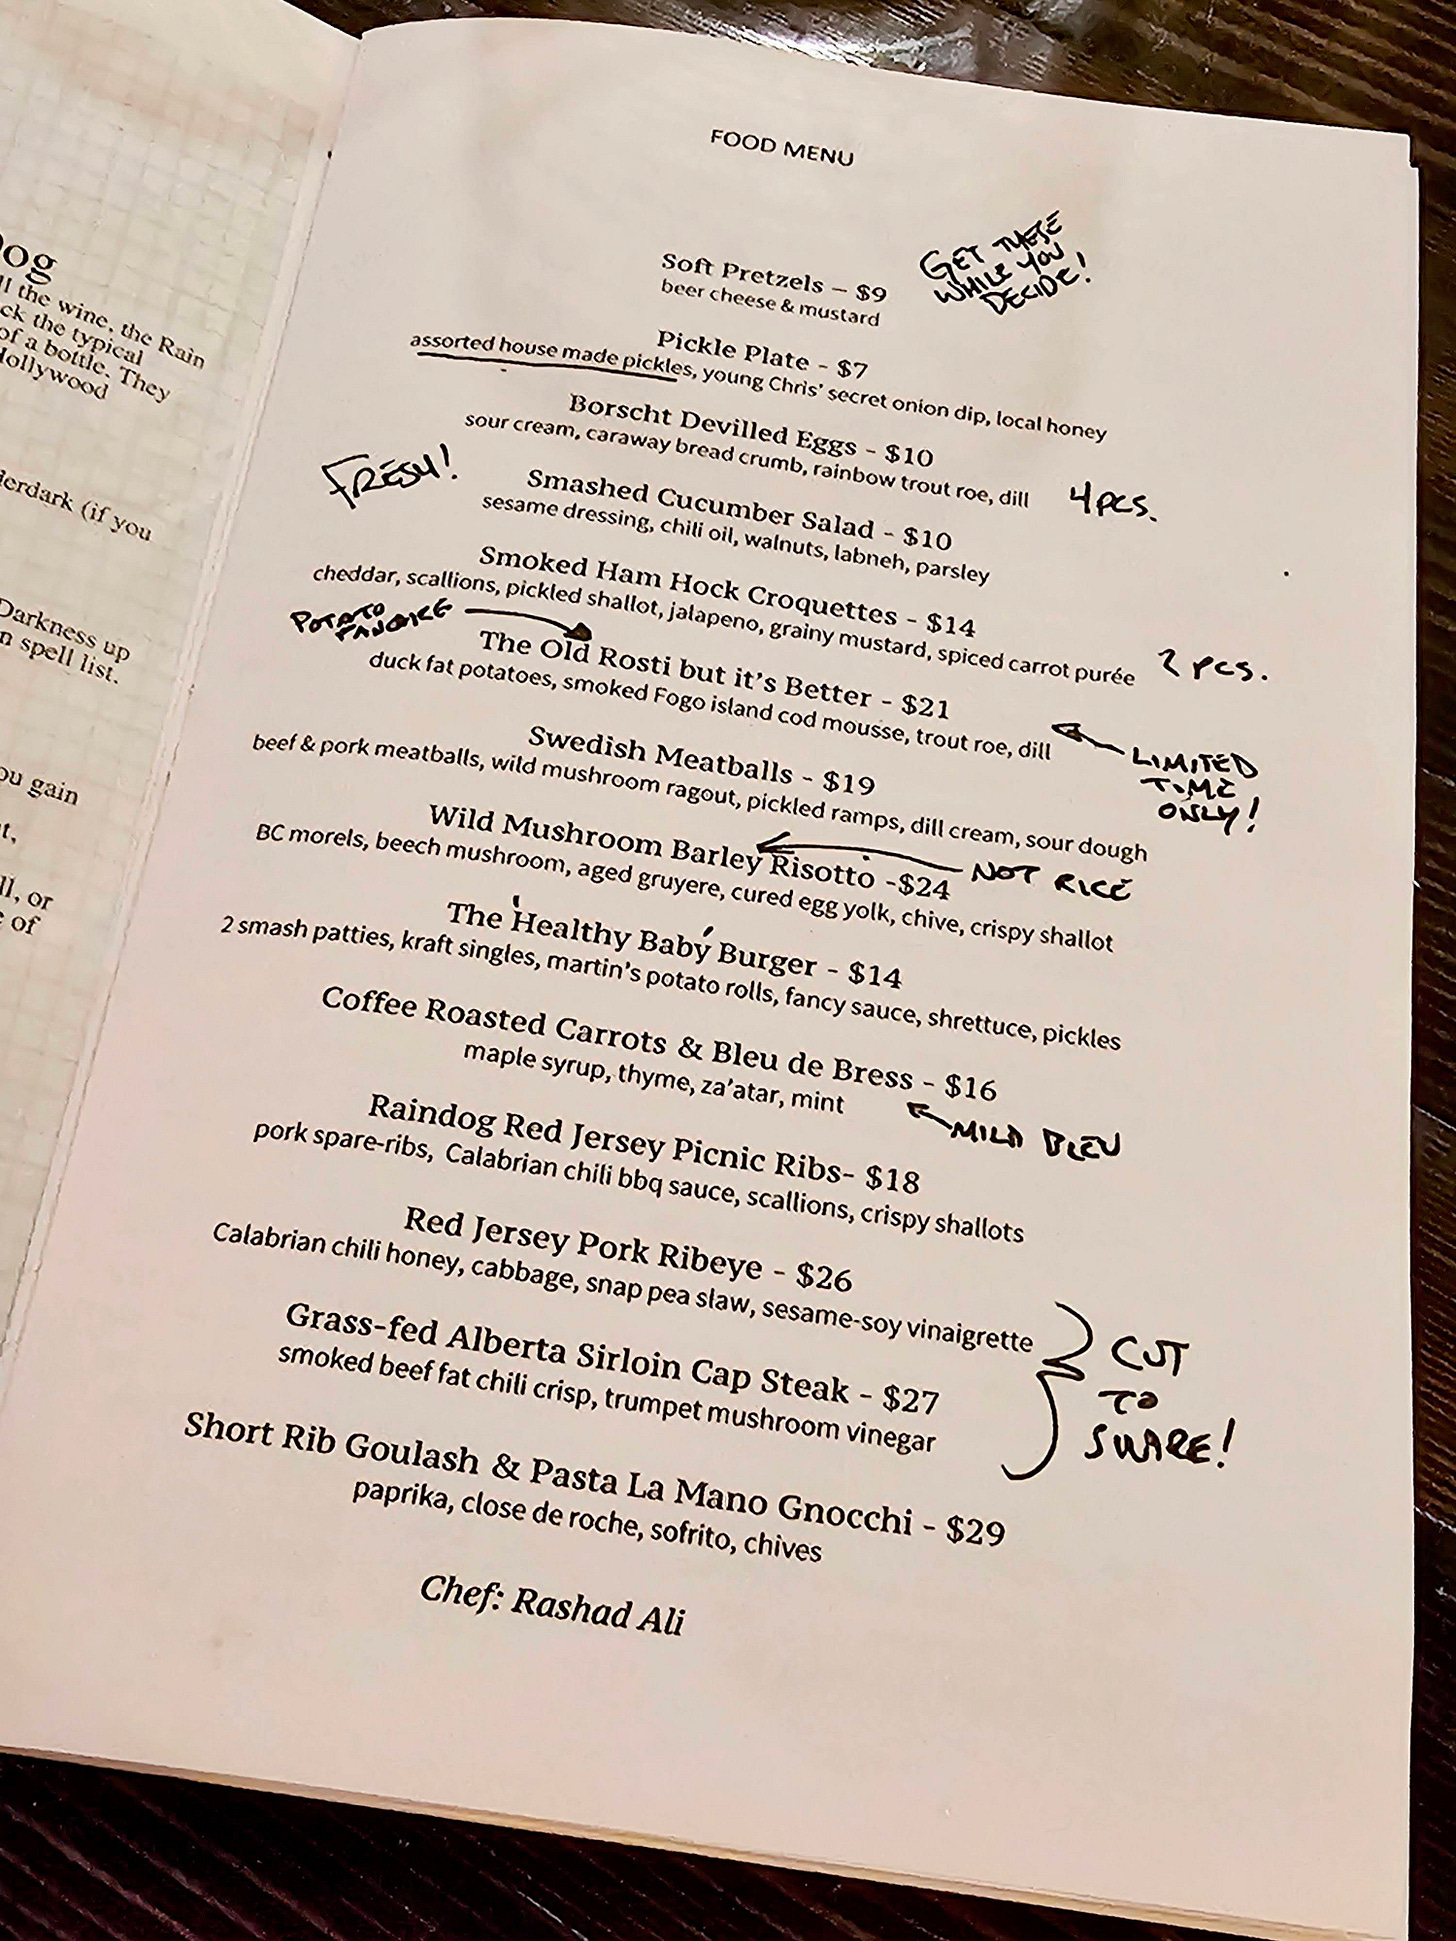 og
ll the wine, the Rain
ck the typical
of a bottle. They
Hollywood
derdark (if you
Darkness up
n spell list.
ou gain
t,
ll, or
of
FOOD MENU
Soft Pretzels – $9
beer cheese & mustard
GET THESE
WHILE YOU
DECIDE!
Pickle Plate - $7
assorted house made pickles, young Chris' secret onion dip, local honey
Borscht Devilled Eggs - $10
sour cream, caraway bread crumb, rainbow trout roe, dill
4 PCS.
FRESH!
Smashed Cucumber Salad - $10
sesame dressing, chili oil, walnuts, labneh, parsley
Smoked Ham Hock Croquettes - $14
cheddar, scallions, pickled shallot, jalapeno, grainy mustard, spiced carrot purée
2 PCS.
POTATO
PANCAKE
The Old Rosti but it's Better - $21
duck fat potatoes, smoked Fogo island cod mousse, trout roe, dill
LIMITED
TIME
ONLY!
Swedish Meatballs - $19
beef & pork meatballs, wild mushroom ragout, pickled ramps, dill cream, sour dough
Wild Mushroom Barley Risotto -$24
NOT RICE
BC morels, beech mushroom, aged gruyere, cured egg yolk, chive, crispy shallot
The 'Healthy Baby' Burger - $14
2 smash patties, kraft singles, martin's potato rolls, fancy sauce, shrettuce, pickles
Coffee Roasted Carrots & Bleu de Bress - $16
maple syrup, thyme, za'atar, mint
MILD BLEU
Raindog Red Jersey Picnic Ribs- $18
pork spare-ribs, Calabrian chili bbq sauce, scallions, crispy shallots
Red Jersey Pork Ribeye - $26
Calabrian chili honey, cabbage, snap pea slaw, sesame-soy vinaigrette
Grass-fed Alberta Sirloin Cap Steak - $27
smoked beef fat chili crisp, trumpet mushroom vinegar
CUT
TO
SHARE!
Short Rib Goulash & Pasta La Mano Gnocchi - $29
paprika, close de roche, sofrito, chives
Chef: Rashad Ali